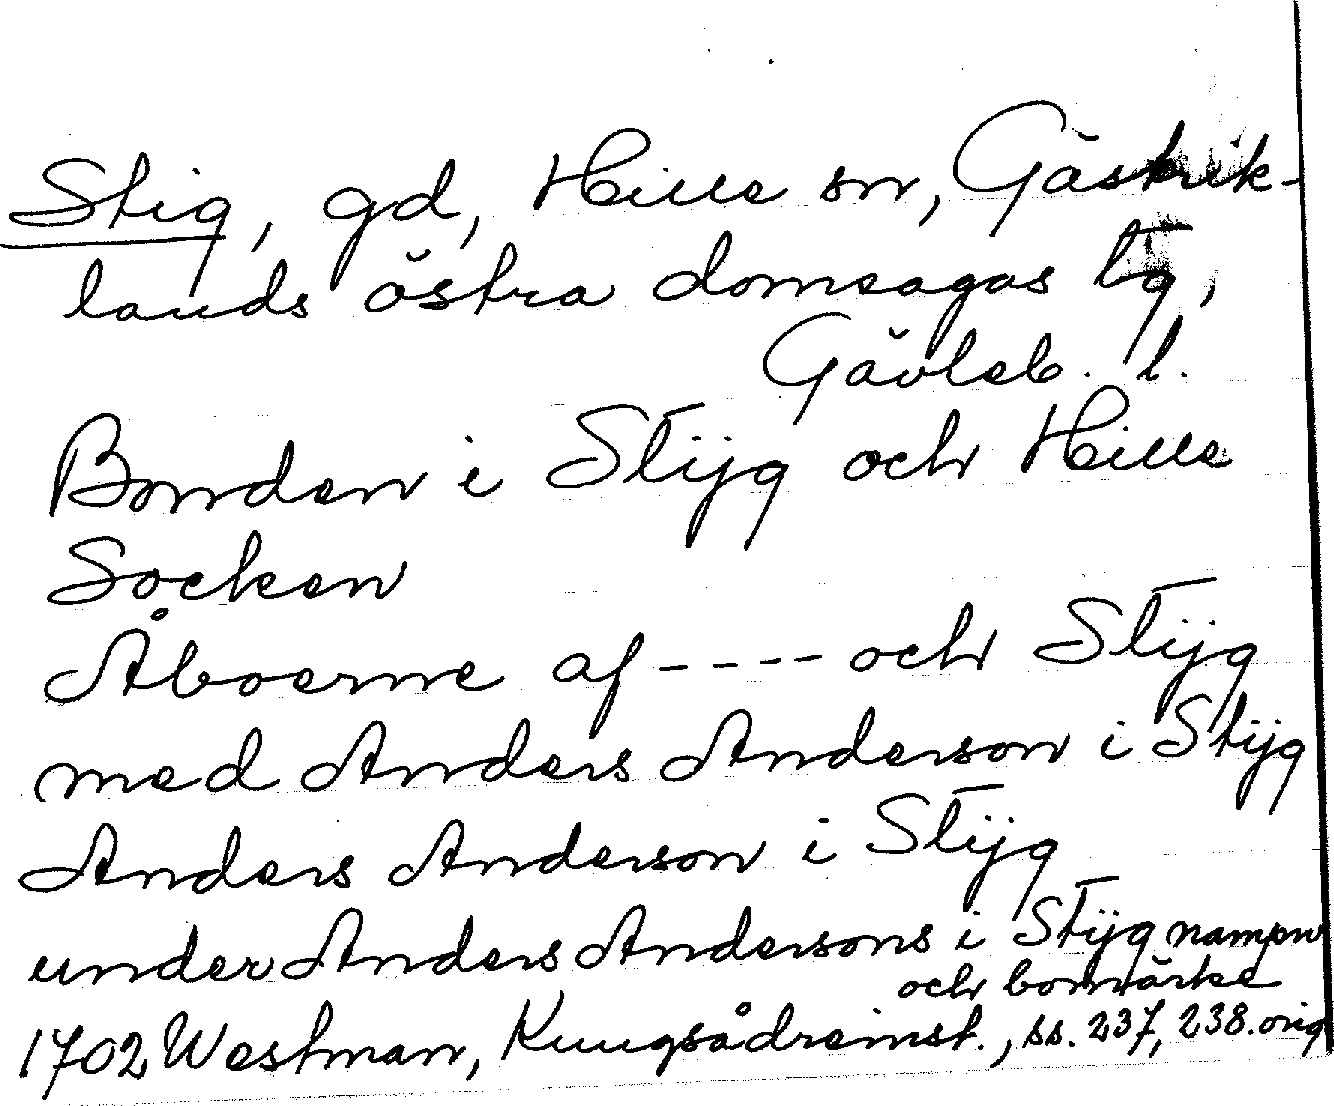 Stig, gd, Hille sn, Gästrik-
lands östra domsagas tg,
Gävleb. l.
Bonden i Stijg och Hille
Socken
Åboerne af ---- och Stijg
med Anders Anderson i Stijg
Anders Anderson i Stijg
under Anders Andersons i Stijg nampn
och bomärke
1702 Westman, Kungsådreinst., ss. 237, 238. orig